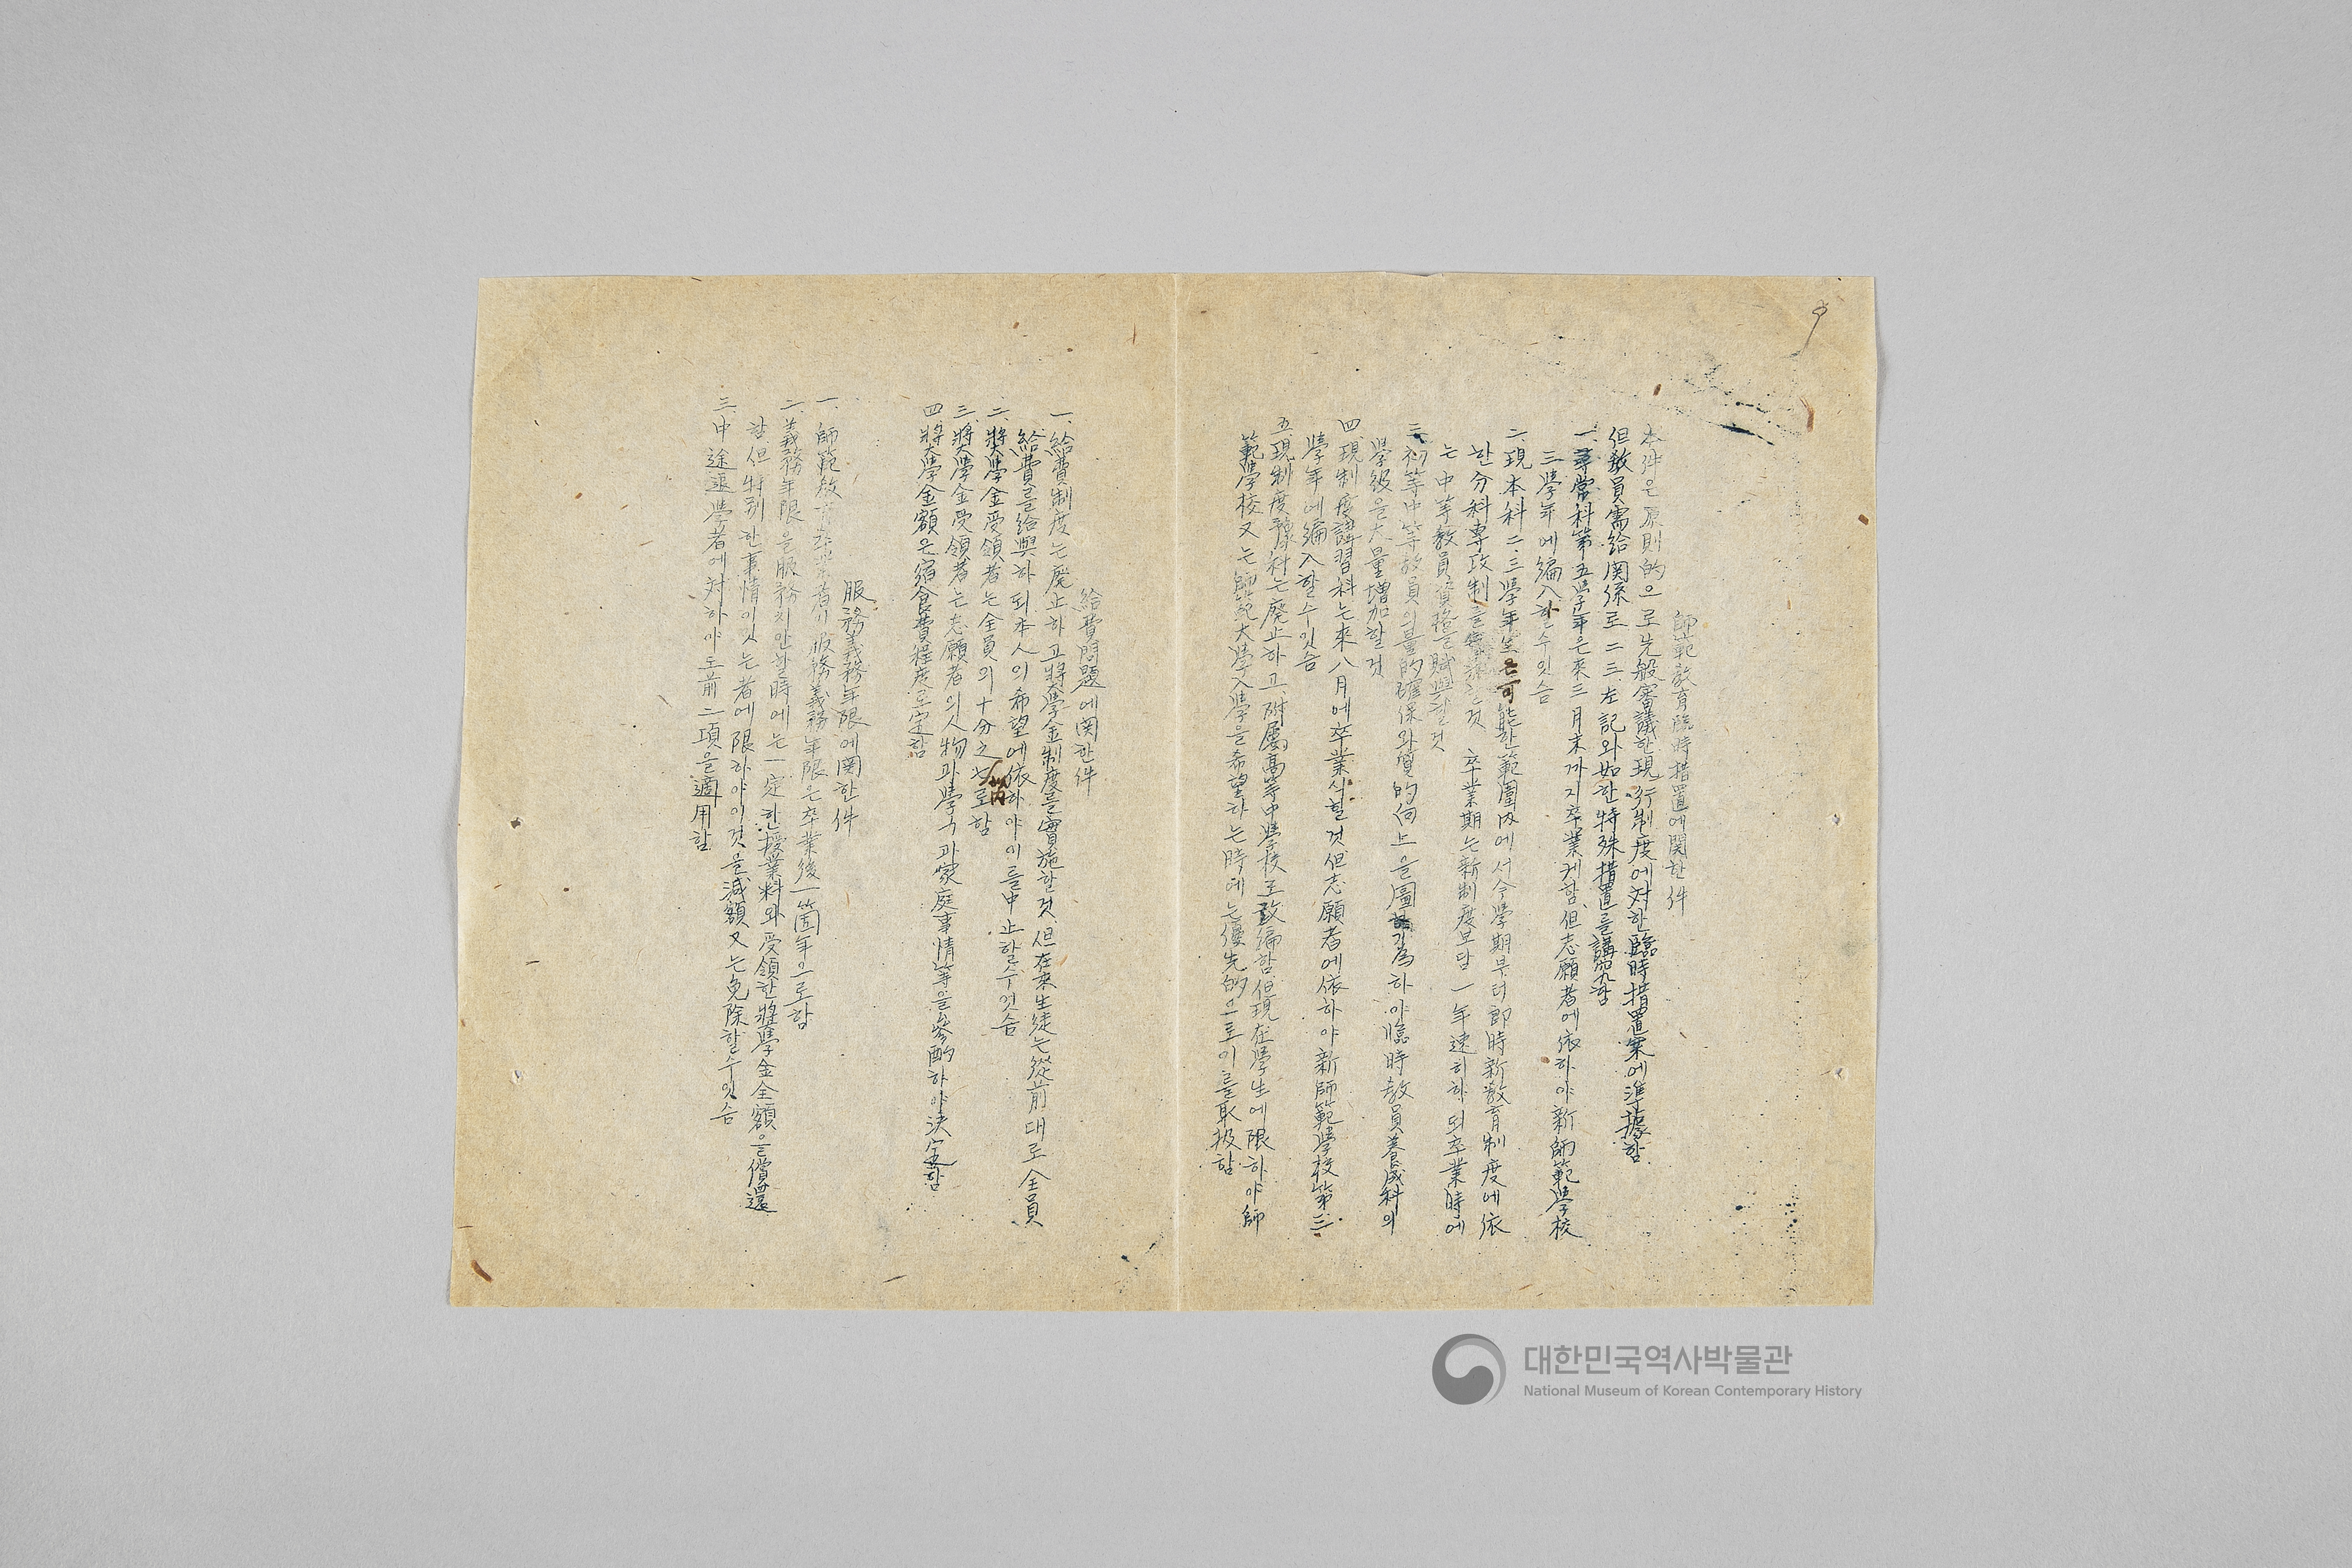 師範敎育臨時措置에関한件
本件은原則的으로先般審議한現行制度에対한臨時措置案에準據함
但敎員需給関係로二三左記와如한特殊措置를講究함
一、尋常科第五學年은來三月末까지卒業케함、但志願者에依하야新師範學校
三學年에編入할수잇슴
二、現本科二、三學年生은可能한範圍內에서今學期부터卽時新敎育制度에依
한分科專攻制를 것 卒業期는新制度보담一年速히하되卒業時에
는中等敎員資格을賦與할것
三、初等中等敎員의量的確保와質的向上을圖 爲하야臨時敎員養成科의
學級을大量增加할것
四、現制度講習科는來八月에卒業식힐것但志願者에依하야新師範學校第三
學年에編入할수잇슴
五、現制度豫科는廢止하고、附屬高等中學校로改編함、但現在學生에限하야師
範學校又는師範大學入學을希望하는時에는優先的으로이를取扱함
給費問題에関한件
一、給費制度는廢止하고奬學金制度를實施할것、但在來生徒는從前대로全員
給費를給與하되本人의希望에依하야이를中止할수잇슴
二、奬學金受領者는全員의十分之七內로함
三、奬學金受領者는志願者의人物과學力과家庭事情等을參酌하야決定함
四、奬學金額은宿食費程度로定함
服務義務年限에関한件
一、師範敎育卒業者의服務義務年限은卒業後一箇年으로함
二、義務年限을服務치안할時에는一定한授業料와受領한奬學金全額을償還
함、但特別한事情이잇는者에限하야이것을減額又는免除할수잇슴
三、中途退學者에対하야도前二項을適用함
대한민국역사박물관
National Museum of Korean Contemporary History